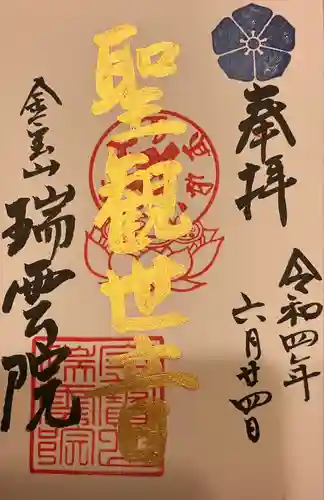 奉拝
令和四年
六月廿四日
聖観世音
金宝山
瑞雲院